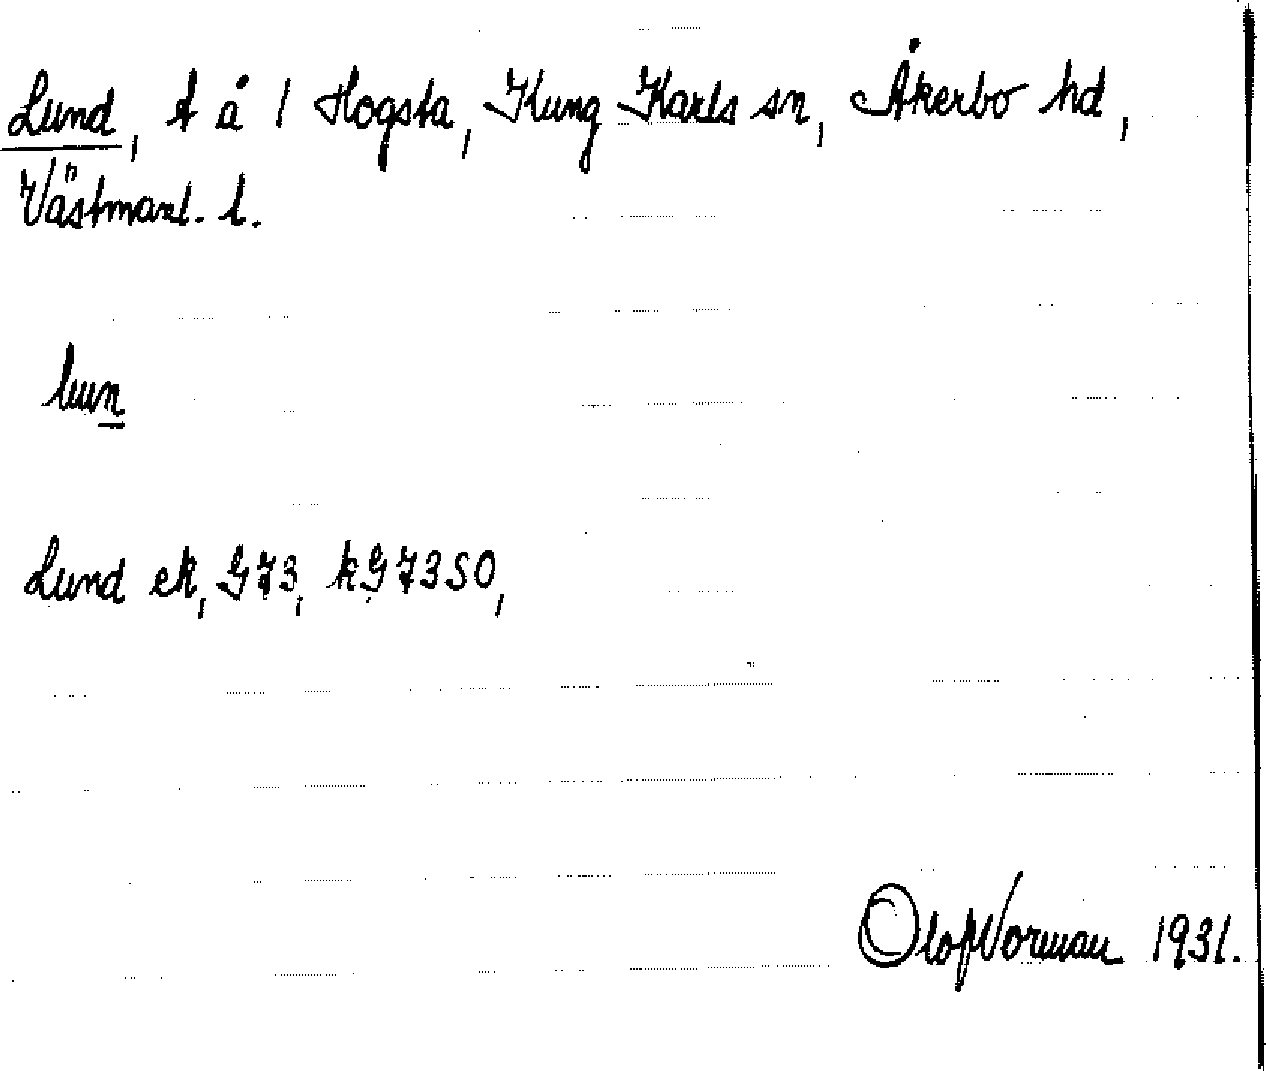 Lund, t å 1 Hogsta, Kung Karls sn, Åkerbo hd,
Västmanl. l.
lun
Lund ek, G73, kG73SO,
Olof Norman 1931.